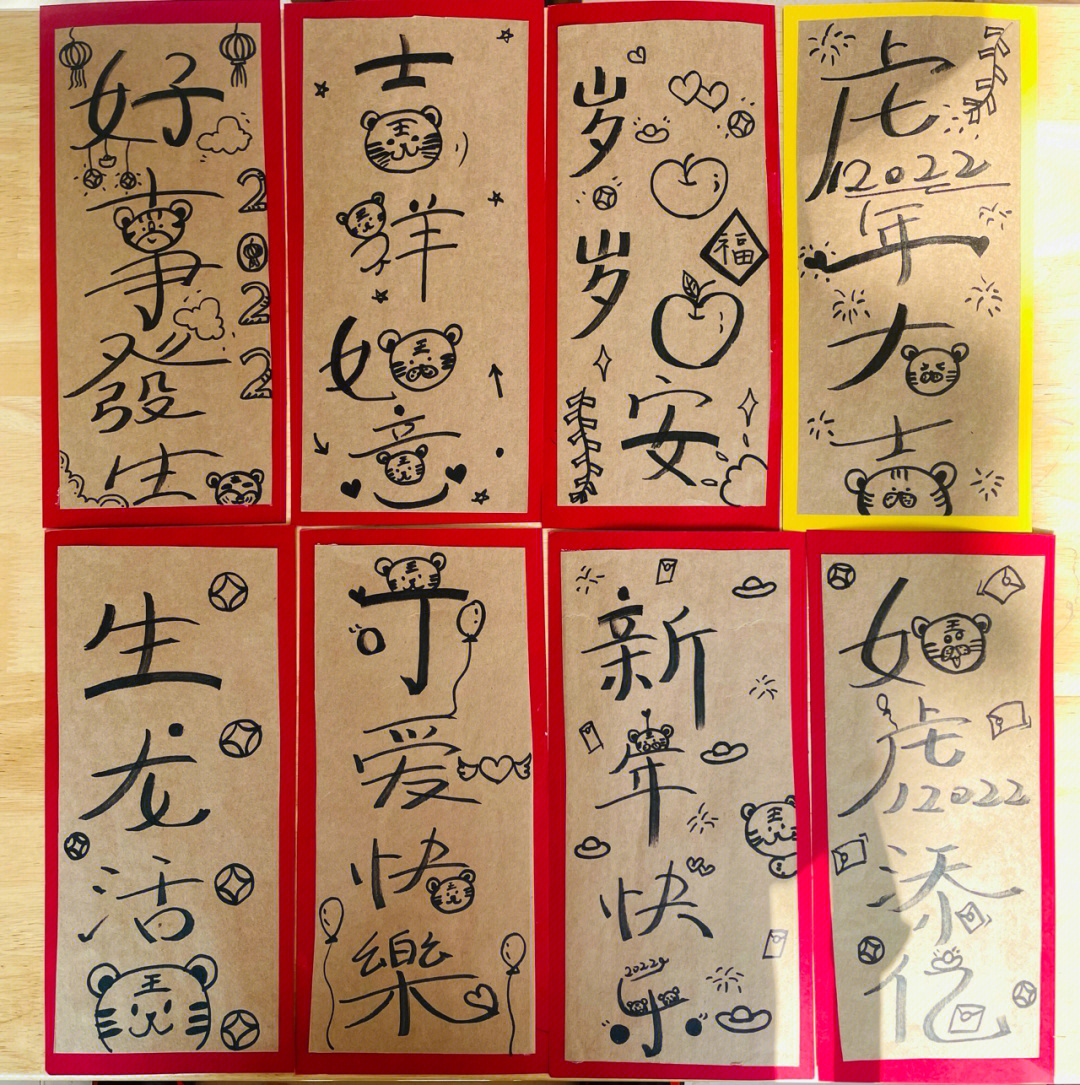 好事發生
2022
吉祥如意
岁岁安
福
虎2022年大吉
生龙活
可爱快樂
新年快乐
2022
如虎2022添亿